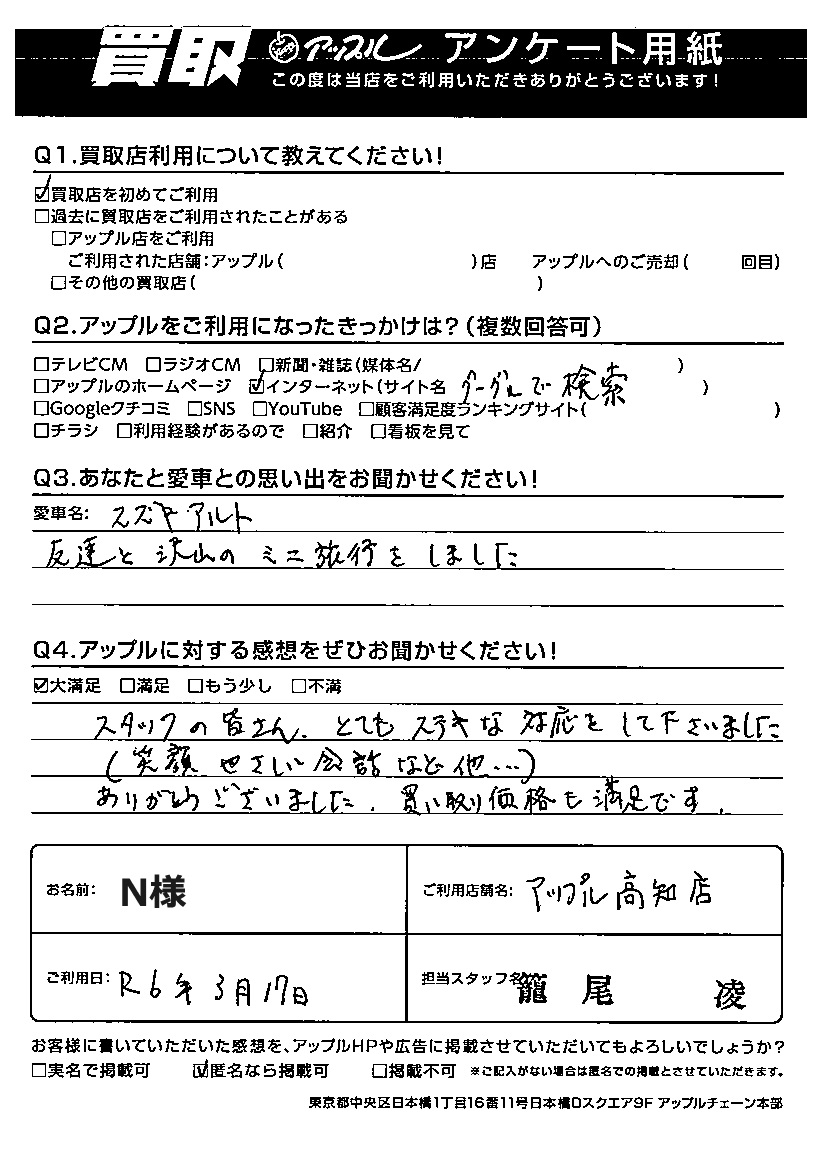 買取 アップル アンケート用紙
この度は当店をご利用いただきありがとうございます!
Q1.買取店利用について教えてください!
☑買取店を初めてご利用
□過去に買取店をご利用されたことがある
□アップル店をご利用
ご利用された店舗:アップル( )店 アップルへのご売却( 回目)
□その他の買取店( )
Q2.アップルをご利用になったきっかけは?(複数回答可)
□テレビCM □ラジオCM □新聞・雑誌(媒体名/ )
□アップルのホームページ ☑インターネット(サイト名 グーグルで検索 )
□Googleクチコミ □SNS □YouTube □顧客満足度ランキングサイト( )
□チラシ □利用経験があるので □紹介 □看板を見て
Q3.あなたと愛車との思い出をお聞かせください!
愛車名: スズキ アルト
友達と 沢山の ミニ旅行を しました
Q4.アップルに対する感想をぜひお聞かせください!
☑大満足 □満足 □もう少し □不満
スタッフの皆さん、とても ステキな 対応をして下さいました
(笑顔 やさしい会話など他…)
ありがとうございました。買い取り価格も満足です。
お名前: N様 ご利用店舗名: アップル高知店
ご利用日: R6年3月17日 担当スタッフ名: 籠尾 凌
お客様に書いていただいた感想を、アップルHPや広告に掲載させていただいてもよろしいでしょうか?
□実名で掲載可 ☑匿名なら掲載可 □掲載不可 ※ご記入がない場合は匿名での掲載とさせていただきます。
東京都中央区日本橋1丁目16番11号日本橋Dスクエア9F アップルチェーン本部